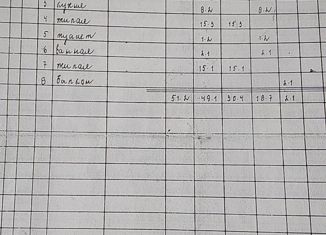 3 кухня 8.2 8.2
4 жилая 15.3 15.3
5 туалет 1.2 1.2
6 ванная 2.1 2.1
7 жилая 15.1 15.1
8 балкон 2.1
51.2 49.1 30.4 18.7 2.1